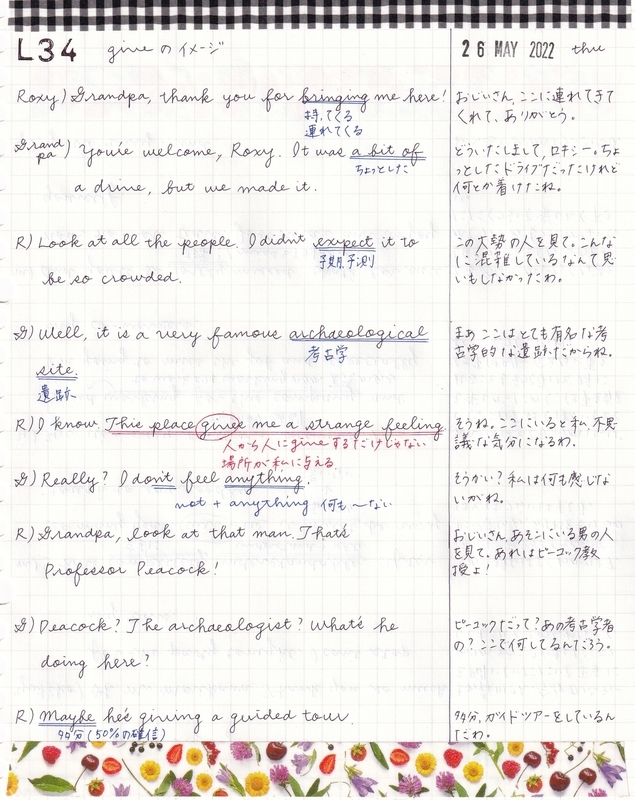 L34 giveのイメージ
26 MAY 2022 thu
Roxy) Grandpa, thank you for bringing me here!
持ってくる
連れてくる
Grandpa) You're welcome, Roxy. It was a bit of
ちょっとした
a drive, but we made it.
R) Look at all the people. I didn't expect it to
予期、予測
be so crowded.
G) Well, it is a very famous archaeological
考古学
site.
遺跡
R) I know. This place gives me a strange feeling
人から人にgiveするだけじゃない
場所が私に与える
G) Really? I don't feel anything.
not + anything 何も〜ない
R) Grandpa, look at that man. That's
Professor Peacock!
G) Peacock? The archaeologist? What's he
doing here?
R) Maybe he's giving a guided tour.
多分(50%の確信)
おじいさん、ここに連れてきて
くれて、ありがとう。
どういたしまして、ロキシー。ちょ
っとしたドライブだったけれど
何とか着けたね。
この大勢の人を見て。こんな
に混雑しているなんて思
いもしなかったわ。
まぁここはとても有名な考
古学的な遺跡だからね。
そうね。ここにいると私、不思
議な気分になるわ。
そうかい?私は何も感じな
いがね。
おじいさん、あそこにいる男の人
を見て。あれはピーコック教
授よ!
ピーコックだって?あの考古学者
の?ここで何してるんだろう。
多分、ガイドツアーをしているん
だわ。